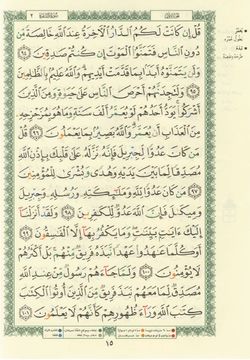 قُلْ إِن كَانَتْ لَكُمُ ٱلدَّارُ ٱلْأَخِرَةُ عِندَ ٱللَّهِ خَالِصَةً مِّن
دُونِ ٱلنَّاسِ فَتَمَنَّوُا۟ ٱلْمَوْتَ إِن كُنتُمْ صَٰدِقِينَ ٩٤
وَلَن يَتَمَنَّوْهُ أَبَدًۢا بِمَا قَدَّمَتْ أَيْدِيهِمْ وَٱللَّهُ عَلِيمٌۢ بِٱلظَّٰلِمِينَ
٩٥ وَلَتَجِدَنَّهُمْ أَحْرَصَ ٱلنَّاسِ عَلَىٰ حَيَوٰةٍ وَمِنَ ٱلَّذِينَ
أَشْرَكُوا۟ يَوَدُّ أَحَدُهُمْ لَوْ يُعَمَّرُ أَلْفَ سَنَةٍ وَمَا هُوَ بِمُزَحْزِحِهِۦ
مِنَ ٱلْعَذَابِ أَن يُعَمَّرَ وَٱللَّهُ بَصِيرٌۢ بِمَا يَعْمَلُونَ ٩٦ قُلْ
مَن كَانَ عَدُوًّا لِّجِبْرِيلَ فَإِنَّهُۥ نَزَّلَهُۥ عَلَىٰ قَلْبِكَ بِإِذْنِ ٱللَّهِ
مُصَدِّقًا لِّمَا بَيْنَ يَدَيْهِ وَهُدًى وَبُشْرَىٰ لِلْمُؤْمِنِينَ
٩٧ مَن كَانَ عَدُوًّا لِّلَّهِ وَمَلَٰٓئِكَتِهِۦ وَرُسُلِهِۦ وَجِبْرِيلَ
وَمِيكَىٰلَ فَإِنَّ ٱللَّهَ عَدُوٌّ لِّلْكَٰفِرِينَ ٩٨ وَلَقَدْ أَنزَلْنَآ
إِلَيْكَ ءَايَٰتٍۭ بَيِّنَٰتٍ وَمَا يَكْفُرُ بِهَآ إِلَّا ٱلْفَٰسِقُونَ ٩٩
أَوَكُلَّمَا عَٰهَدُوا۟ عَهْدًا نَّبَذَهُۥ فَرِيقٌ مِّنْهُم بَلْ أَكْثَرُهُمْ
لَا يُؤْمِنُونَ ١٠٠ وَلَمَّا جَآءَهُمْ رَسُولٌ مِّنْ عِندِ ٱللَّهِ
مُصَدِّقٌ لِّمَا مَعَهُمْ نَبَذَ فَرِيقٌ مِّنَ ٱلَّذِينَ أُوتُوا۟ ٱلْكِتَٰبَ
كِتَٰبَ ٱللَّهِ وَرَآءَ ظُهُورِهِمْ كَأَنَّهُمْ لَا يَعْلَمُونَ ١٠١
١٥